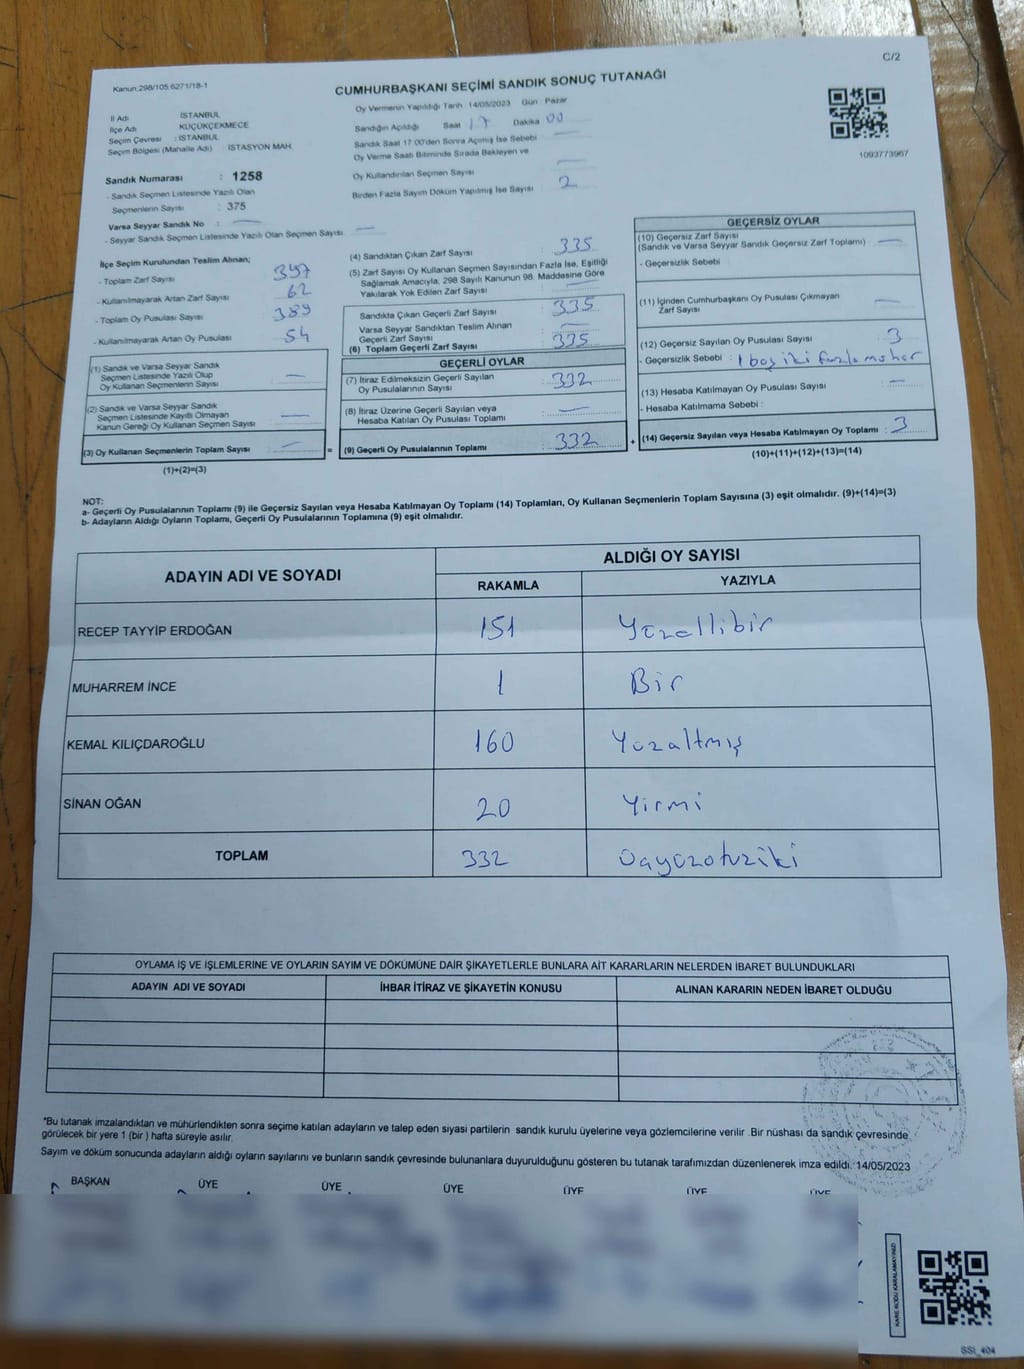 C/2
Kanun:298/105,6271/18-1
CUMHURBAŞKANI SEÇİMİ SANDIK SONUÇ TUTANAĞI
İl Adı İSTANBUL
İlçe Adı KÜÇÜKÇEKMECE
Seçim Çevresi : İSTANBUL
Seçim Bölgesi (Mahalle Adı) İSTASYON MAH.
Sandık Numarası : 1258
- Sandık Seçmen Listesinde Yazılı Olan
Seçmenlerin Sayısı : 375
Varsa Seyyar Sandık No : —
- Seyyar Sandık Seçmen Listesinde Yazılı Olan Seçmen Sayısı : —
Oy Vermenin Yapıldığı Tarih 14/05/2023 Gün Pazar
Sandığın Açıldığı Saat 17 Dakika 00
Sandık Saat 17:00'den Sonra Açılmış İse Sebebi —
Oy Verme Saati Bitiminde Sırada Bekleyen ve
Oy Kullandırılan Seçmen Sayısı —
Birden Fazla Sayım Döküm Yapılmış İse Sayısı 2
1093773967
İlçe Seçim Kurulundan Teslim Alınan;
- Toplam Zarf Sayısı 397
- Kullanılmayarak Artan Zarf Sayısı 62
- Toplam Oy Pusulası Sayısı 389
- Kullanılmayarak Artan Oy Pusulası 54
(1) Sandık ve Varsa Seyyar Sandık
Seçmen Listesinde Yazılı Olup
Oy Kullanan Seçmenlerin Sayısı : —
(2) Sandık ve Varsa Seyyar Sandık
Seçmen Listesinde Kayıtlı Olmayan
Kanun Gereği Oy Kullanan Seçmen Sayısı : —
(3) Oy Kullanan Seçmenlerin Toplam Sayısı : —
(1)+(2)=(3)
=
(4) Sandıktan Çıkan Zarf Sayısı : 335
(5) Zarf Sayısı Oy Kullanan Seçmen Sayısından Fazla İse, Eşitliği
Sağlamak Amacıyla, 298 Sayılı Kanunun 98. Maddesine Göre
Yakılarak Yok Edilen Zarf Sayısı : —
Sandıkta Çıkan Geçerli Zarf Sayısı : 335
Varsa Seyyar Sandıktan Teslim Alınan
Geçerli Zarf Sayısı : —
(6) Toplam Geçerli Zarf Sayısı : 335
GEÇERLİ OYLAR
(7) İtiraz Edilmeksizin Geçerli Sayılan
Oy Pusulalarının Sayısı : 332
(8) İtiraz Üzerine Geçerli Sayılan veya
Hesaba Katılan Oy Pusulası Toplamı : —
(9) Geçerli Oy Pusulalarının Toplamı : 332
+
GEÇERSİZ OYLAR
(10) Geçersiz Zarf Sayısı
(Sandık ve Varsa Seyyar Sandık Geçersiz Zarf Toplamı) : —
- Geçersizlik Sebebi
(11) İçinden Cumhurbaşkanı Oy Pusulası Çıkmayan
Zarf Sayısı : —
(12) Geçersiz Sayılan Oy Pusulası Sayısı : 3
- Geçersizlik Sebebi : 1 boş iki fazla mühür
(13) Hesaba Katılmayan Oy Pusulası Sayısı : —
- Hesaba Katılmama Sebebi :
(14) Geçersiz Sayılan veya Hesaba Katılmayan Oy Toplamı : 3
(10)+(11)+(12)+(13)=(14)
NOT:
a- Geçerli Oy Pusulalarının Toplamı (9) ile Geçersiz Sayılan veya Hesaba Katılmayan Oy Toplamı (14) Toplamları, Oy Kullanan Seçmenlerin Toplam Sayısına (3) eşit olmalıdır. (9)+(14)=(3)
b- Adayların Aldığı Oyların Toplamı, Geçerli Oy Pusulalarının Toplamına (9) eşit olmalıdır.
ADAYIN ADI VE SOYADI ALDIĞI OY SAYISI
RAKAMLA YAZIYLA
RECEP TAYYİP ERDOĞAN 151 Yüzellibir
MUHARREM İNCE 1 Bir
KEMAL KILIÇDAROĞLU 160 Yüzaltmış
SİNAN OĞAN 20 Yirmi
TOPLAM 332 Üçyüzotuziki
OYLAMA İŞ VE İŞLEMLERİNE VE OYLARIN SAYIM VE DÖKÜMÜNE DAİR ŞİKAYETLERLE BUNLARA AİT KARARLARIN NELERDEN İBARET BULUNDUKLARI
ADAYIN ADI VE SOYADI İHBAR İTİRAZ VE ŞİKAYETİN KONUSU ALINAN KARARIN NEDEN İBARET OLDUĞU
*Bu tutanak imzalandıktan ve mühürlendikten sonra seçime katılan adayların ve talep eden siyasi partilerin sandık kurulu üyelerine veya gözlemcilerine verilir .Bir nüshası da sandık çevresinde
görülecek bir yere 1 (bir ) hafta süreyle asılır.
Sayım ve döküm sonucunda adayların aldığı oyların sayılarını ve bunların sandık çevresinde bulunanlara duyurulduğunu gösteren bu tutanak tarafımızdan düzenlenerek imza edildi. 14/05/2023
BAŞKAN ÜYE ÜYE ÜYE ÜYE ÜYE ÜYE
KARE KODU KARALAMAYINIZ!
SSI_404